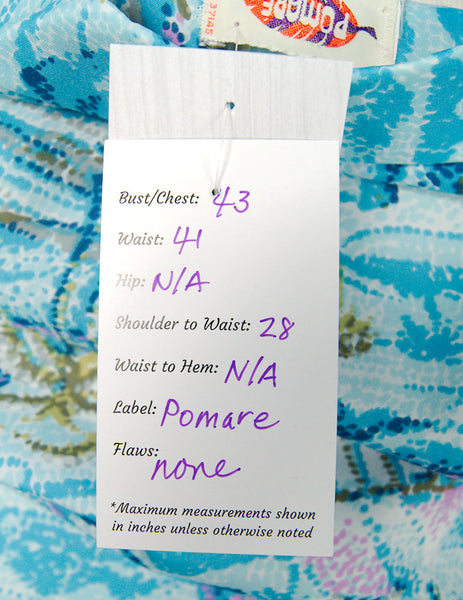 37145
POMARE
Bust/Chest: 43
Waist: 41
Hip: N/A
Shoulder to Waist: 28
Waist to Hem: N/A
Label: Pomare
Flaws: none
*Maximum measurements shown
in inches unless otherwise noted